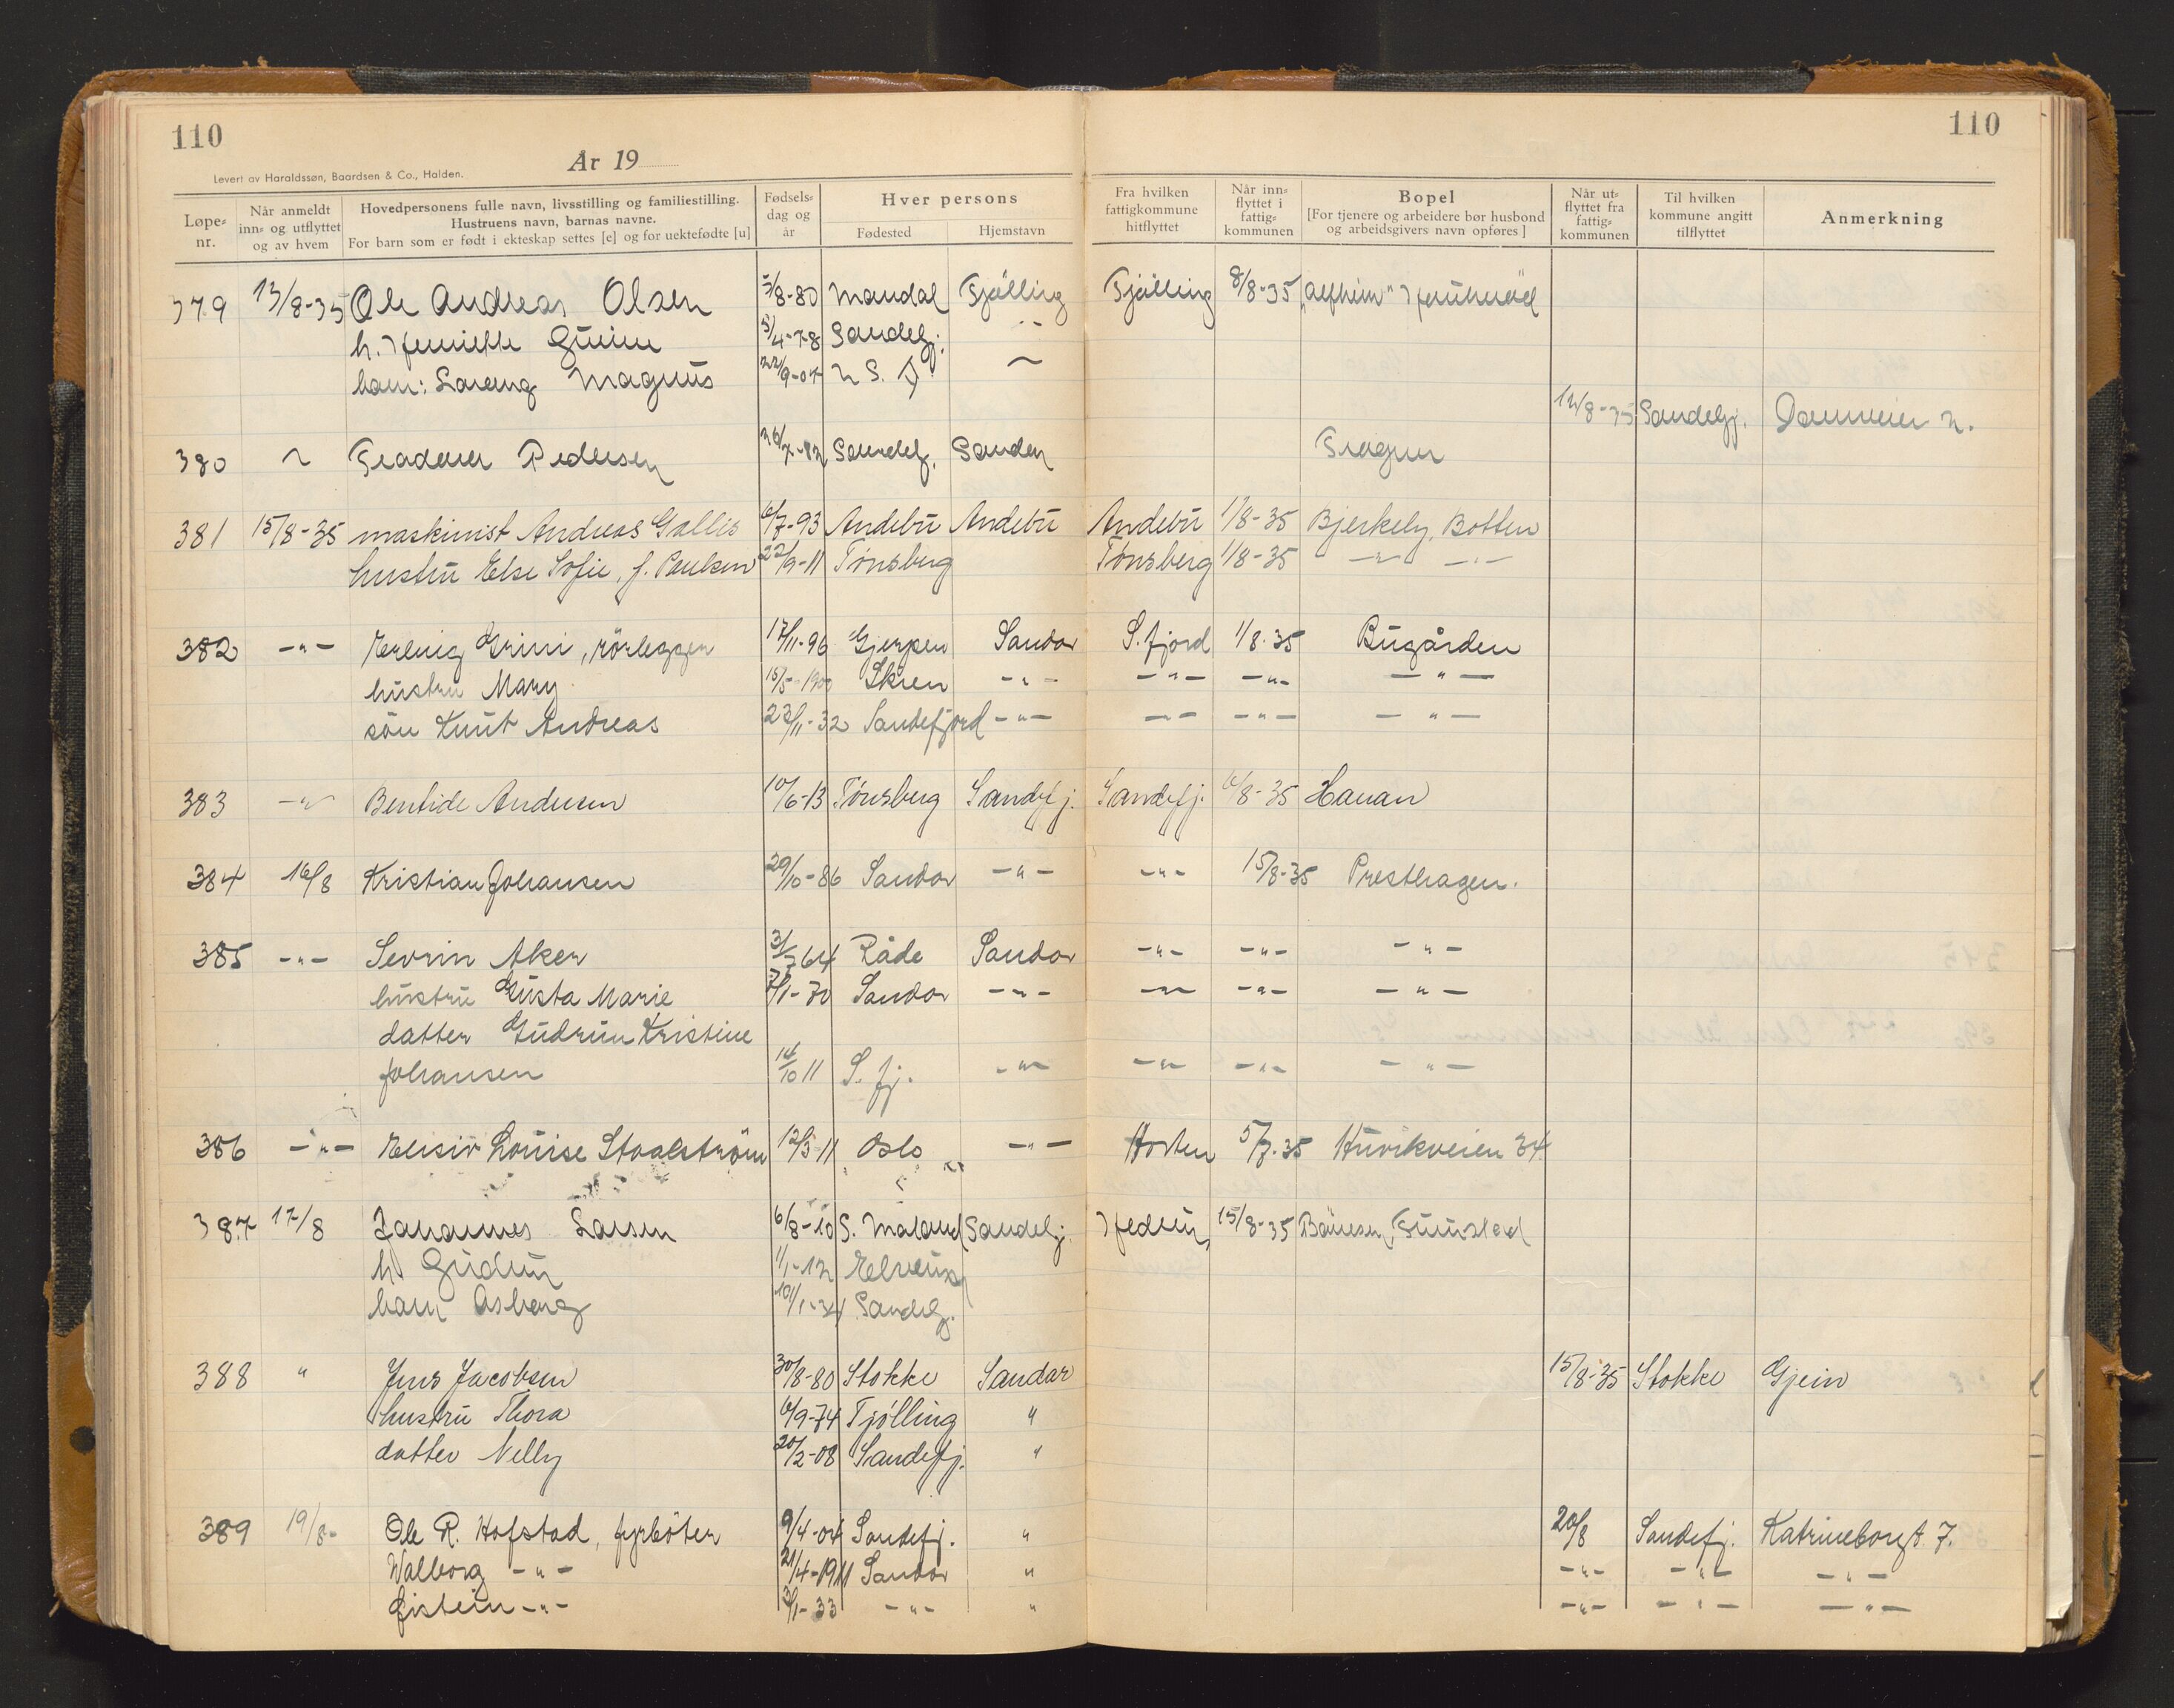 110
110
År 19
Levert av Haraldssøn, Baardsen & Co., Halden.
Løpe- nr.
Når anmeldt inn- og utflyttet og av hvem
Hovedpersonens fulle navn, livsstilling og familiestilling.
Hustruens navn, barnas navne.
For barn som er født i ekteskap settes [e] og for uektefødte [u]
Fødsels- dag og år
Hver persons
Fødested
Hjemstavn
Fra hvilken fattigkommune hitflyttet
Når inn- flyttet i fattig- kommunen
Bopel
[For tjenere og arbeidere bør husbond og arbeidsgivers navn opføres]
Når ut- flyttet fra fattig- kommunen
Til hvilken kommune angitt tilflyttet
Anmerkning
379 13/8-35 Ole Andreas Olsen 5/8-80 Mandal Tjølling Tjølling 8/8-35 "Alfheim"
h. 5/4-78 Sandefj.
barn: Magnus 22/9-07
12/8-35 Sandefj.
380 Pedersen Sandefj. Sandar
381 15/8-35 maskinist Andreas Gallis 6/7-93 Andebu Andebu Andebu 1/8-35 Bjerkely, Botten
hustru Else Sofie, f. Paulsen 22/9-11 Tønsberg Tønsberg 1/8-35 -"- -"-
382 -"- Erling Grini, rørlegger 17/11-96 Gjerpen Sandar S.fjord 1/8.35 Bugården
hustru Mary 15/5-1900 Skien -"- -"- -"- -"-
søn Knut Andreas 23/11-32 Sandefjord -"- -"- -"- -"-
383 -"- Bentide Andersen 10/6-13 Tønsberg Sandefj. Sandefj. 6/8-35 Hauan
384 16/8 Kristian Johansen 29/10-86 Sandar -"- -"- 15/8-35 Presthagen.
385 -"- Sevrin Aker 3/7 64 Råde Sandar -"- -"- -"-
hustru Gusta Marie 7/1-70 Sandar -"- -"- -"- -"-
datter Gudrun Kristine
Johansen 14/10 11 S. fj. -"- -"- -"- -"-
386 -"- Elisiv Louise Staalstrøm 12/3-11 Oslo -"- Horten 5/7.35 Huvikveien 34
387 17/8 Johannes Larsen 6/8-10 S. Maland Sandefj. Hedrum 15/8-35
h. Gudrun 1/1-12 Elverum
barn Asbørg 10/1-34 Sandefj.
388 " Jens Jacobsen 30/8-80 Stokke Sandar 15/8-35 Stokke Gjein
hustru Thora 6/9-74 Tjølling "
datter Nelly 20/2-08 Sandefj. "
389 19/8- Ole R. Hofstad, fyrbøter 9/4-04 Sandefj. " 20/8 Sandefj. Katrineborgt. 7.
Walborg -"- 21/4-1911 Sandar " -"- -"- -"-
Øistein -"- 3/1-33 -"- " -"- -"- -"-